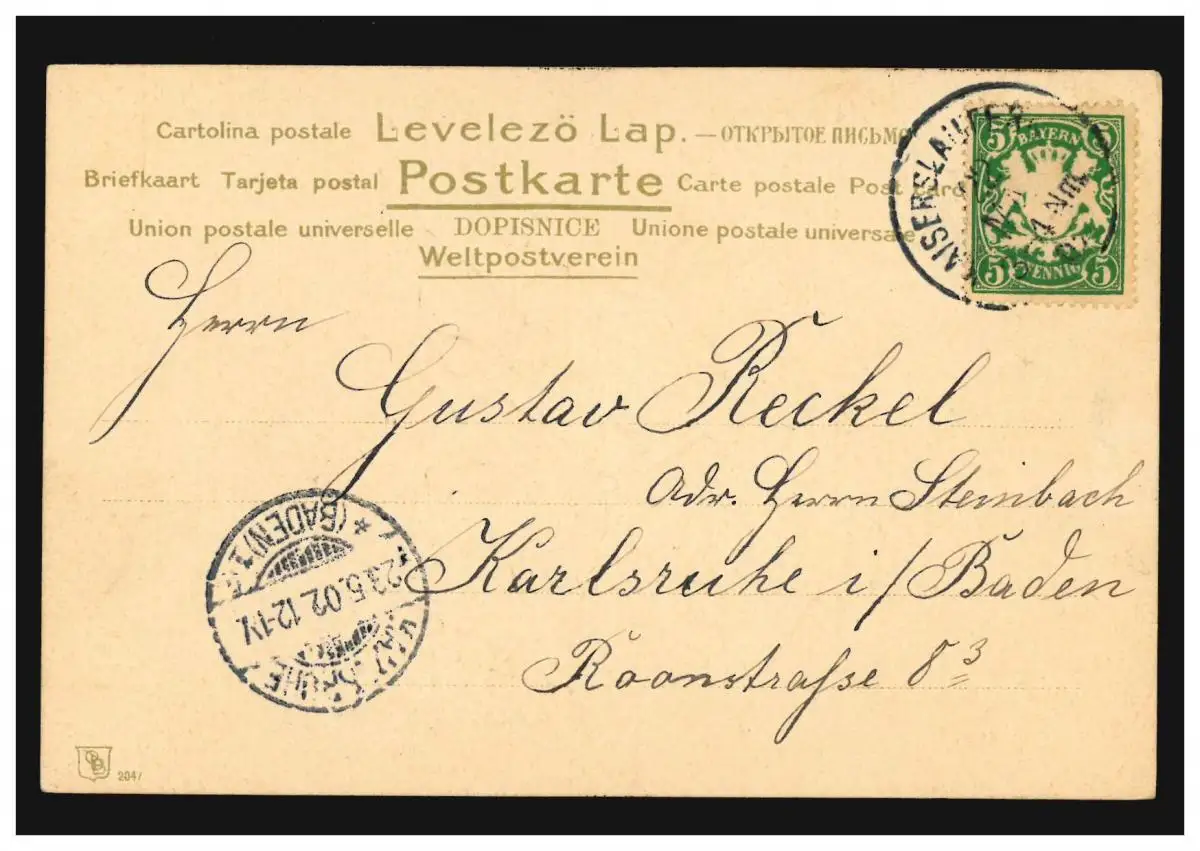 Cartolina postale Levelezö Lap. — ОТКРЫТОЕ ПИСЬМО
Briefkaart Tarjeta postal Postkarte Carte postale Post card
Union postale universelle DOPISNICE Unione postale universale
Weltpostverein
BAYERN
5 5
5 PFENNIG 5
KAISERSLAUTE
4 Nm.
02
Herrn
Gustav Reckel
Adr. Herrn Steinbach
Karlsruhe i/Baden
Roonstraſse 8 3
KARLSRUHE
23.5.02. 12-1V.
* (BADEN) 1.